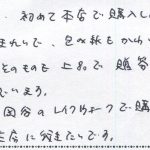 初めて本店で購入し
きれいで、包み紙もかわい
そのものも上品で贈答
思います。
回谷のレイクウォークで購
本店に行きたいです。